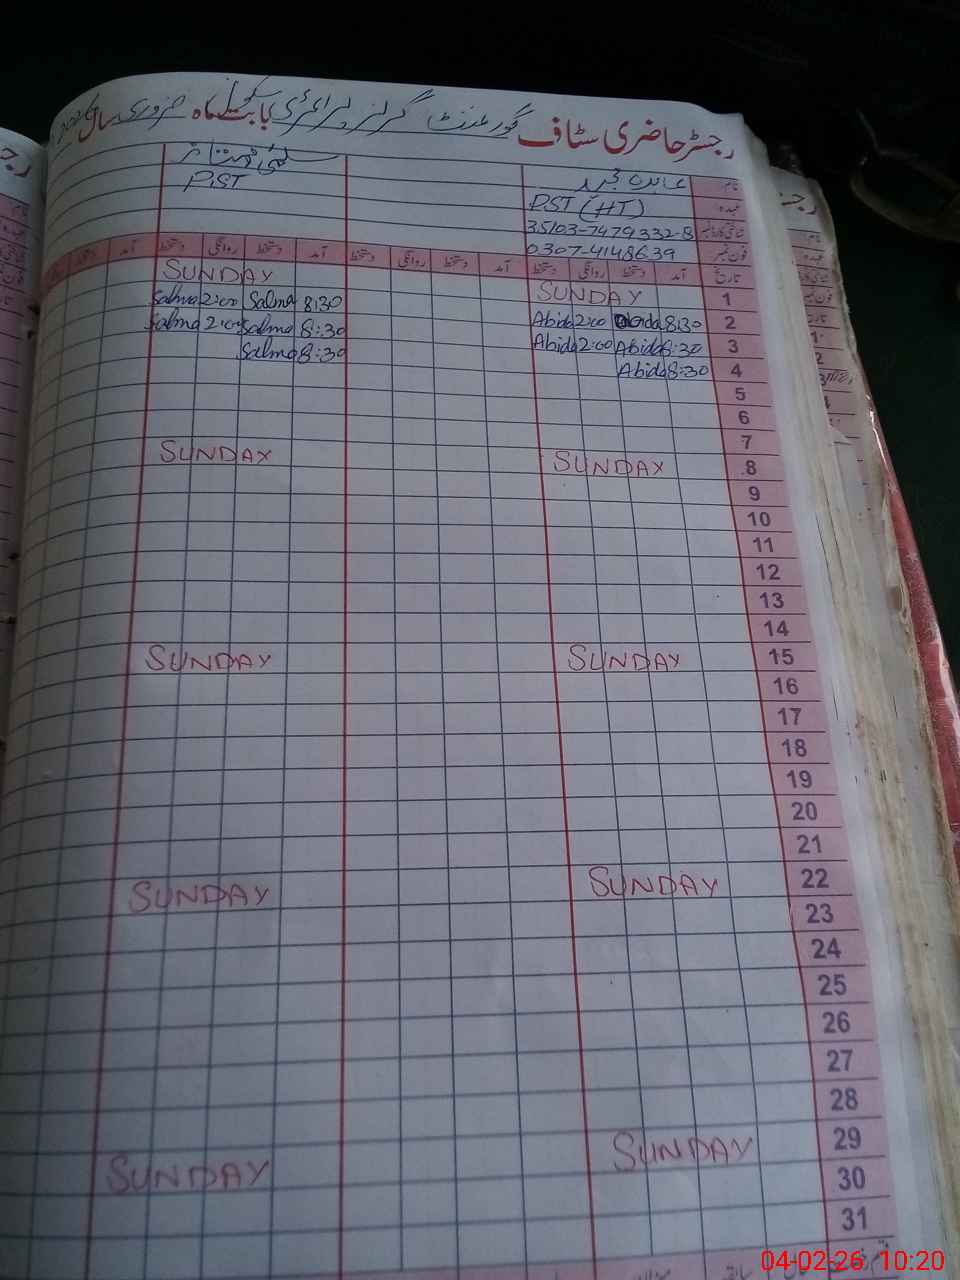 رجسٹر حاضری سٹاف گورنمنٹ گرلز پرائمری سکول بابت ماہ فروری سال 2026
نام عابدہ مجید سلمیٰ ممتاز
عہدہ PST (HT) PST
شناختی کارڈ نمبر 35103-7479332-8
فون نمبر 0307-4148639
تاریخ آمد دستخط روانگی دستخط آمد دستخط روانگی دستخط آمد دستخط روانگی دستخط آمد دستخط
1 SUNDAY SUNDAY
2 8:30 Abida 2:00 Abida 8:30 Salma 2:00 Salma
3 8:30 Abida 2:00 Abida 8:30 Salma 2:00 Salma
4 8:30 Abida 8:30 Salma
5
6
7
8 SUNDAY SUNDAY
9
10
11
12
13
14
15 SUNDAY SUNDAY
16
17
18
19
20
21
22 SUNDAY SUNDAY
23
24
25
26
27
28
29 SUNDAY SUNDAY
30
31
04-02-26 10:20